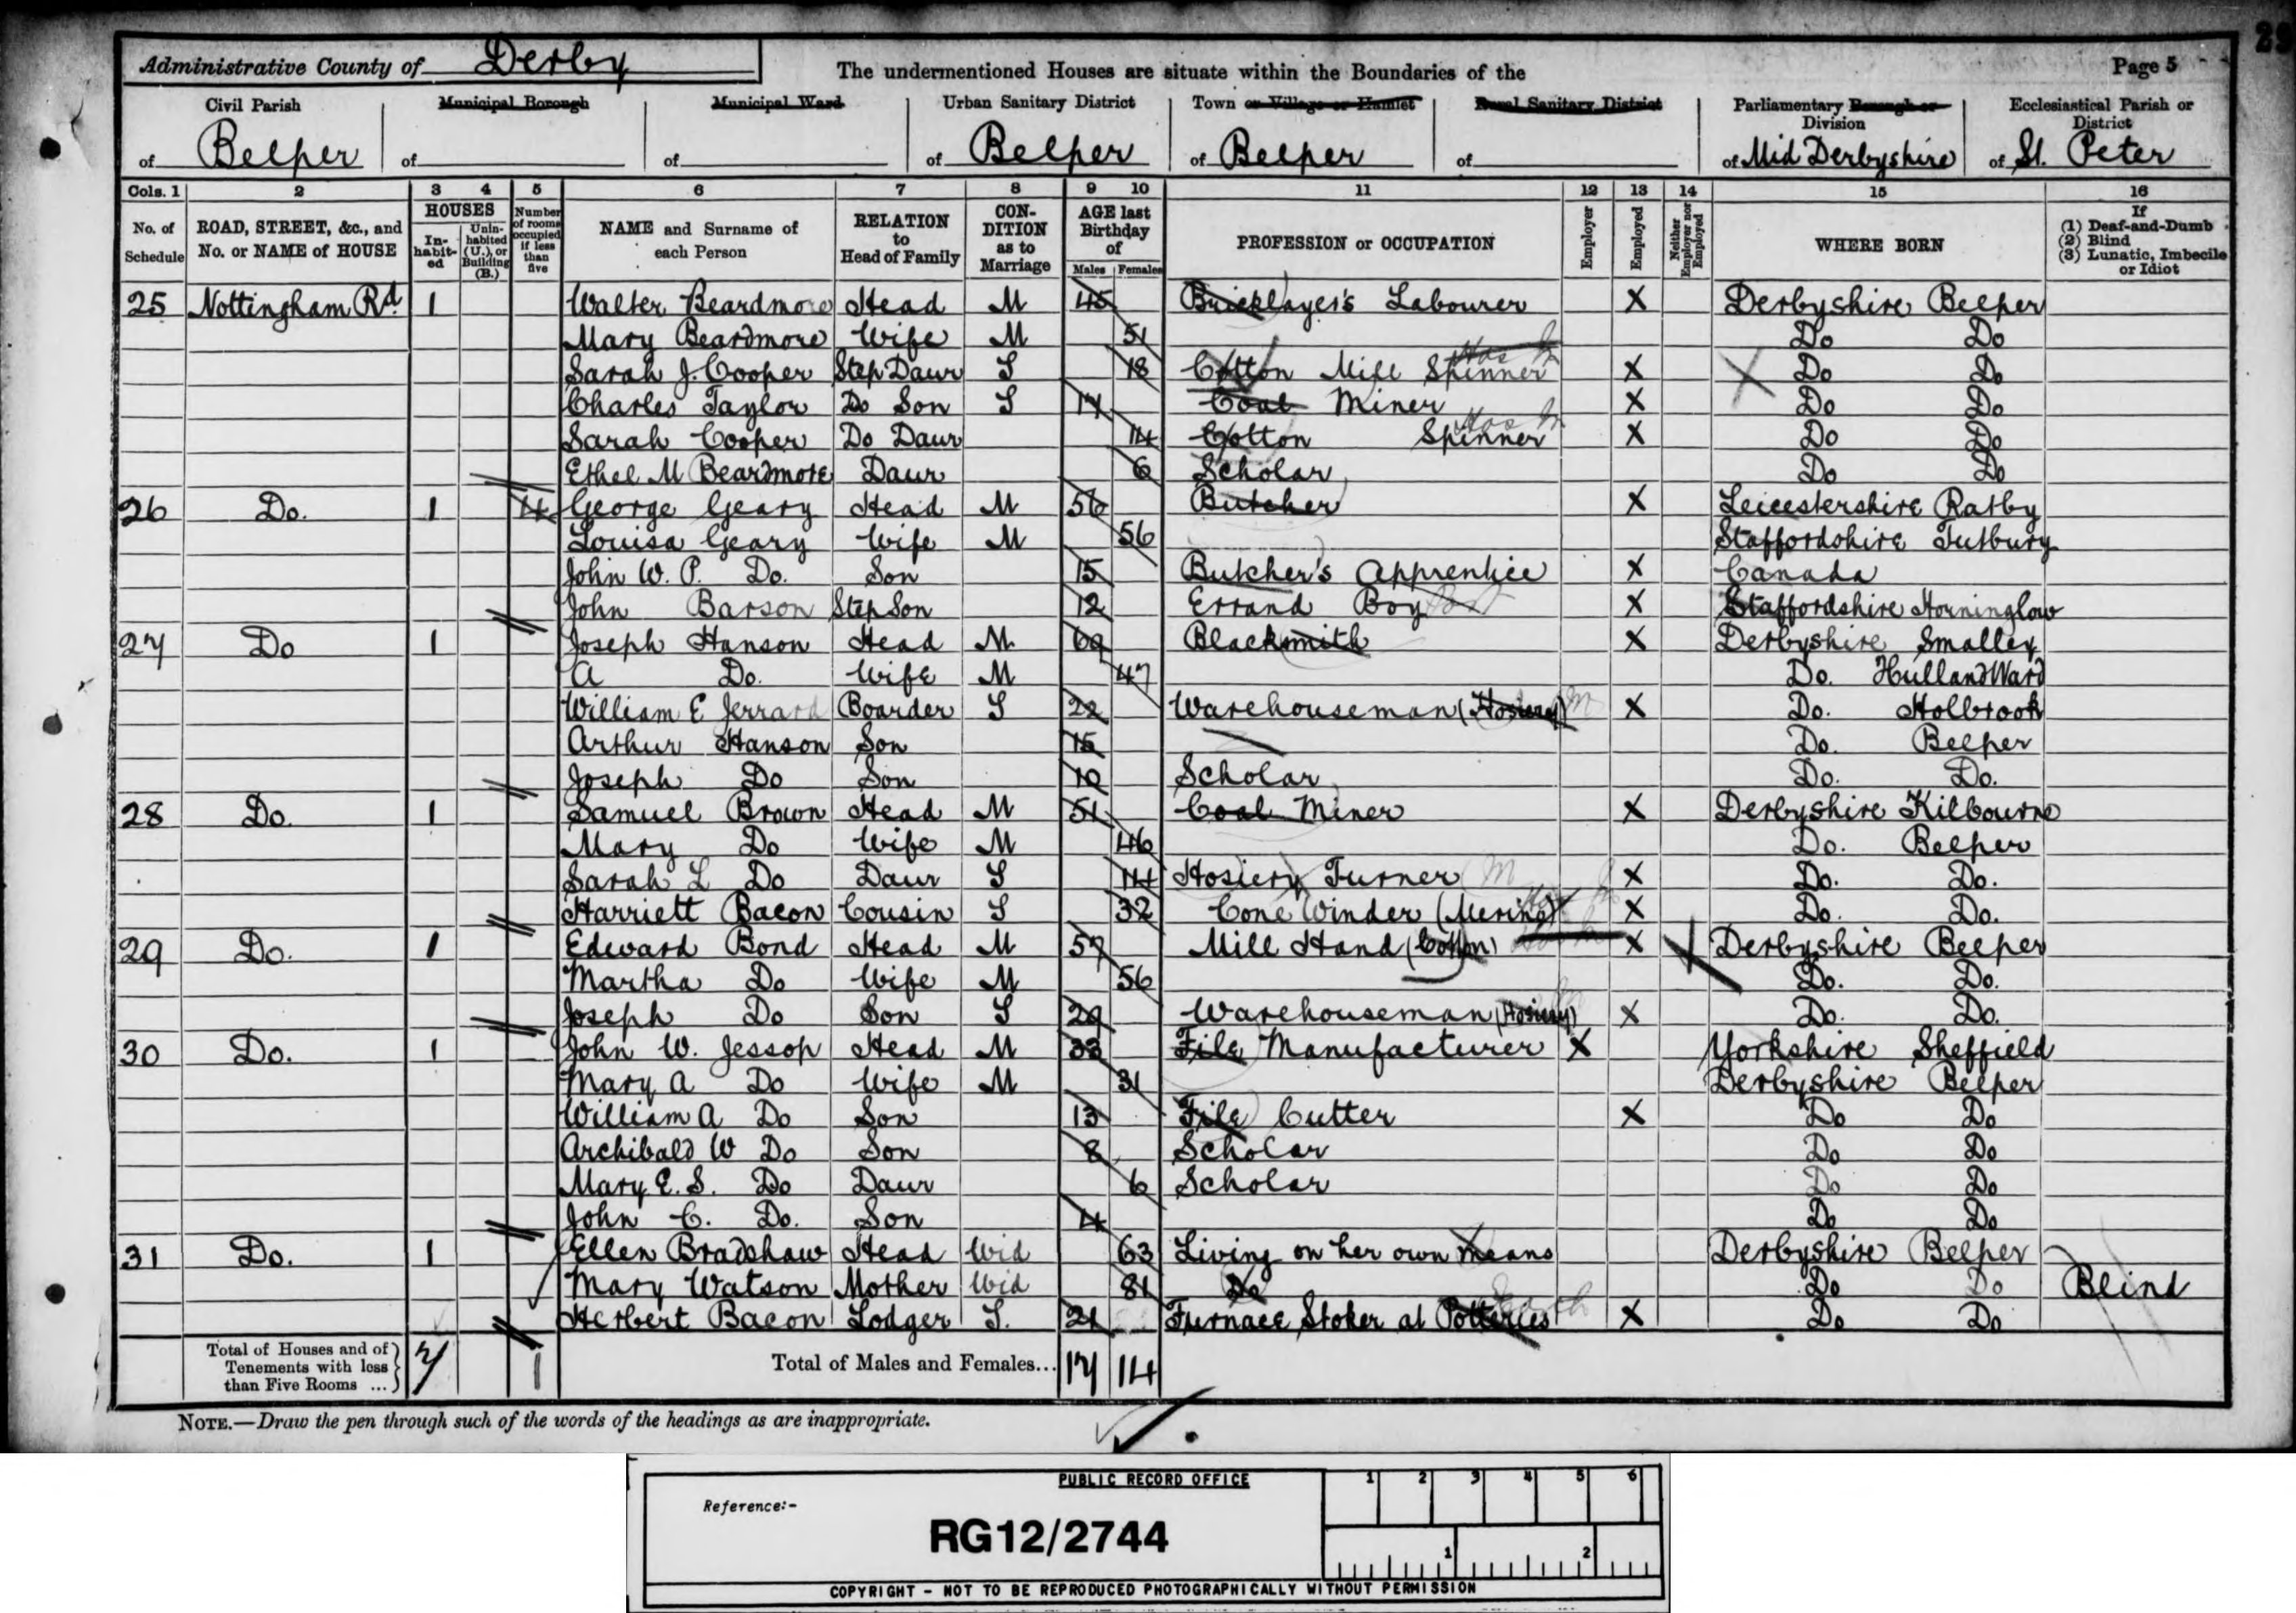 29
Administrative County of Derby The undermentioned Houses are situate within the Boundaries of the Page 5
Civil Parish Municipal Borough Municipal Ward Urban Sanitary District Town or Village or Hamlet Rural Sanitary District Parliamentary Borough or Division Ecclesiastical Parish or District
of Belper of of of Belper of Belper of of Mid Derbyshire of St. Peter
Cols. 1 2 3 4 5 6 7 8 9 10 11 12 13 14 15 16
No. of Schedule ROAD, STREET, &c., and No. or NAME of HOUSE HOUSES In-habit-ed Unin-habited (U.), or Building (B.) Number of rooms occupied if less than five NAME and Surname of each Person RELATION to Head of Family CON-DITION as to Marriage AGE last Birthday of Males Females PROFESSION or OCCUPATION Employer Employed Neither Employer nor Employed WHERE BORN If (1) Deaf-and-Dumb (2) Blind (3) Lunatic, Imbecile or Idiot
25 Nottingham Rd. 1 Walter Beardmore Head M 45 Bricklayer's Labourer X Derbyshire Belper
Mary Beardmore Wife M 51 Do Do
Sarah J. Cooper Step Daur S 18 Cotton Mill Spinner X Do Do
Charles Taylor Do Son S 17 Coal Miner X Do Do
Sarah Cooper Do Daur 14 Cotton Spinner X Do Do
Ethel M Beardmore Daur 6 Scholar Do Do
26 Do. 1 4 George Geary Head M 56 Butcher X Leicestershire Ratby
Louisa Geary Wife M 56 Staffordshire Tutbury
John W. P. Do. Son 15 Butcher's Apprentice X Canada
John Barson Step Son 12 Errand Boy X Staffordshire Horninglow
27 Do 1 Joseph Hanson Head M 60 Blacksmith X Derbyshire Smalley
A Do. Wife M 47 Do. Hulland Ward
William E Jerrard Boarder S 22 Warehouseman (Hosiery) X Do. Holbrook
Arthur Hanson Son 15 Do. Belper
Joseph Do Son 10 Scholar Do. Do.
28 Do. 1 Samuel Brown Head M 51 Coal Miner X Derbyshire Kilbourne
Mary Do Wife M 46 Do. Belper
Sarah L Do Daur S 14 Hosiery Turner X Do. Do.
Harriett Bacon Cousin S 32 Cone Winder (Merino) X Do. Do.
29 Do. 1 Edward Bond Head M 57 Mill Hand (Cotton) X Derbyshire Belper
Martha Do Wife M 56 Do. Do.
Joseph Do Son S 20 Warehouseman (Hosiery) X Do. Do.
30 Do. 1 John W. Jessop Head M 33 File Manufacturer X Yorkshire Sheffield
Mary A Do Wife M 31 Derbyshire Belper
William A Do Son 13 File Cutter X Do Do
Archibald W Do Son 8 Scholar Do Do
Mary E. S. Do Daur 6 Scholar Do Do
John C. Do. Son 4 Do Do
31 Do. 1 Ellen Bradshaw Head Wid 63 Living on her own means Derbyshire Belper
Mary Watson Mother Wid 81 Do Do Do Blind
Herbert Bacon Lodger S. 21 Furnace Stoker at Potteries X Do Do
Total of Houses and of Tenements with less than Five Rooms ... 7 1 Total of Males and Females... 17 14
NOTE.—Draw the pen through such of the words of the headings as are inappropriate.
PUBLIC RECORD OFFICE 1 2 3 4 5 6
Reference:-
RG12/2744
1 2
COPYRIGHT - NOT TO BE REPRODUCED PHOTOGRAPHICALLY WITHOUT PERMISSION